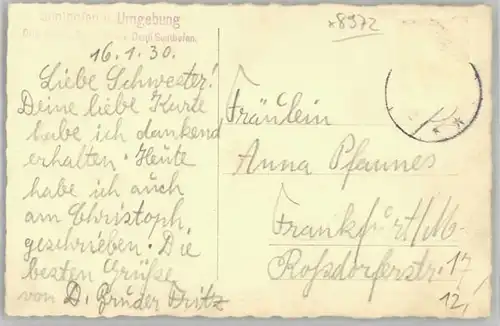 Umgebung
16.1.30.
Liebe Schwester!
Deine liebe Karte
habe ich dankend
erhalten. Heute
habe ich auch
am Christoph
geschrieben. Die
besten Grüße
von D. Bruder Fritz
*8972
Fräulein
Anna Pfannes
Frankfurt/M.
Roßdorferstr. 17
12,